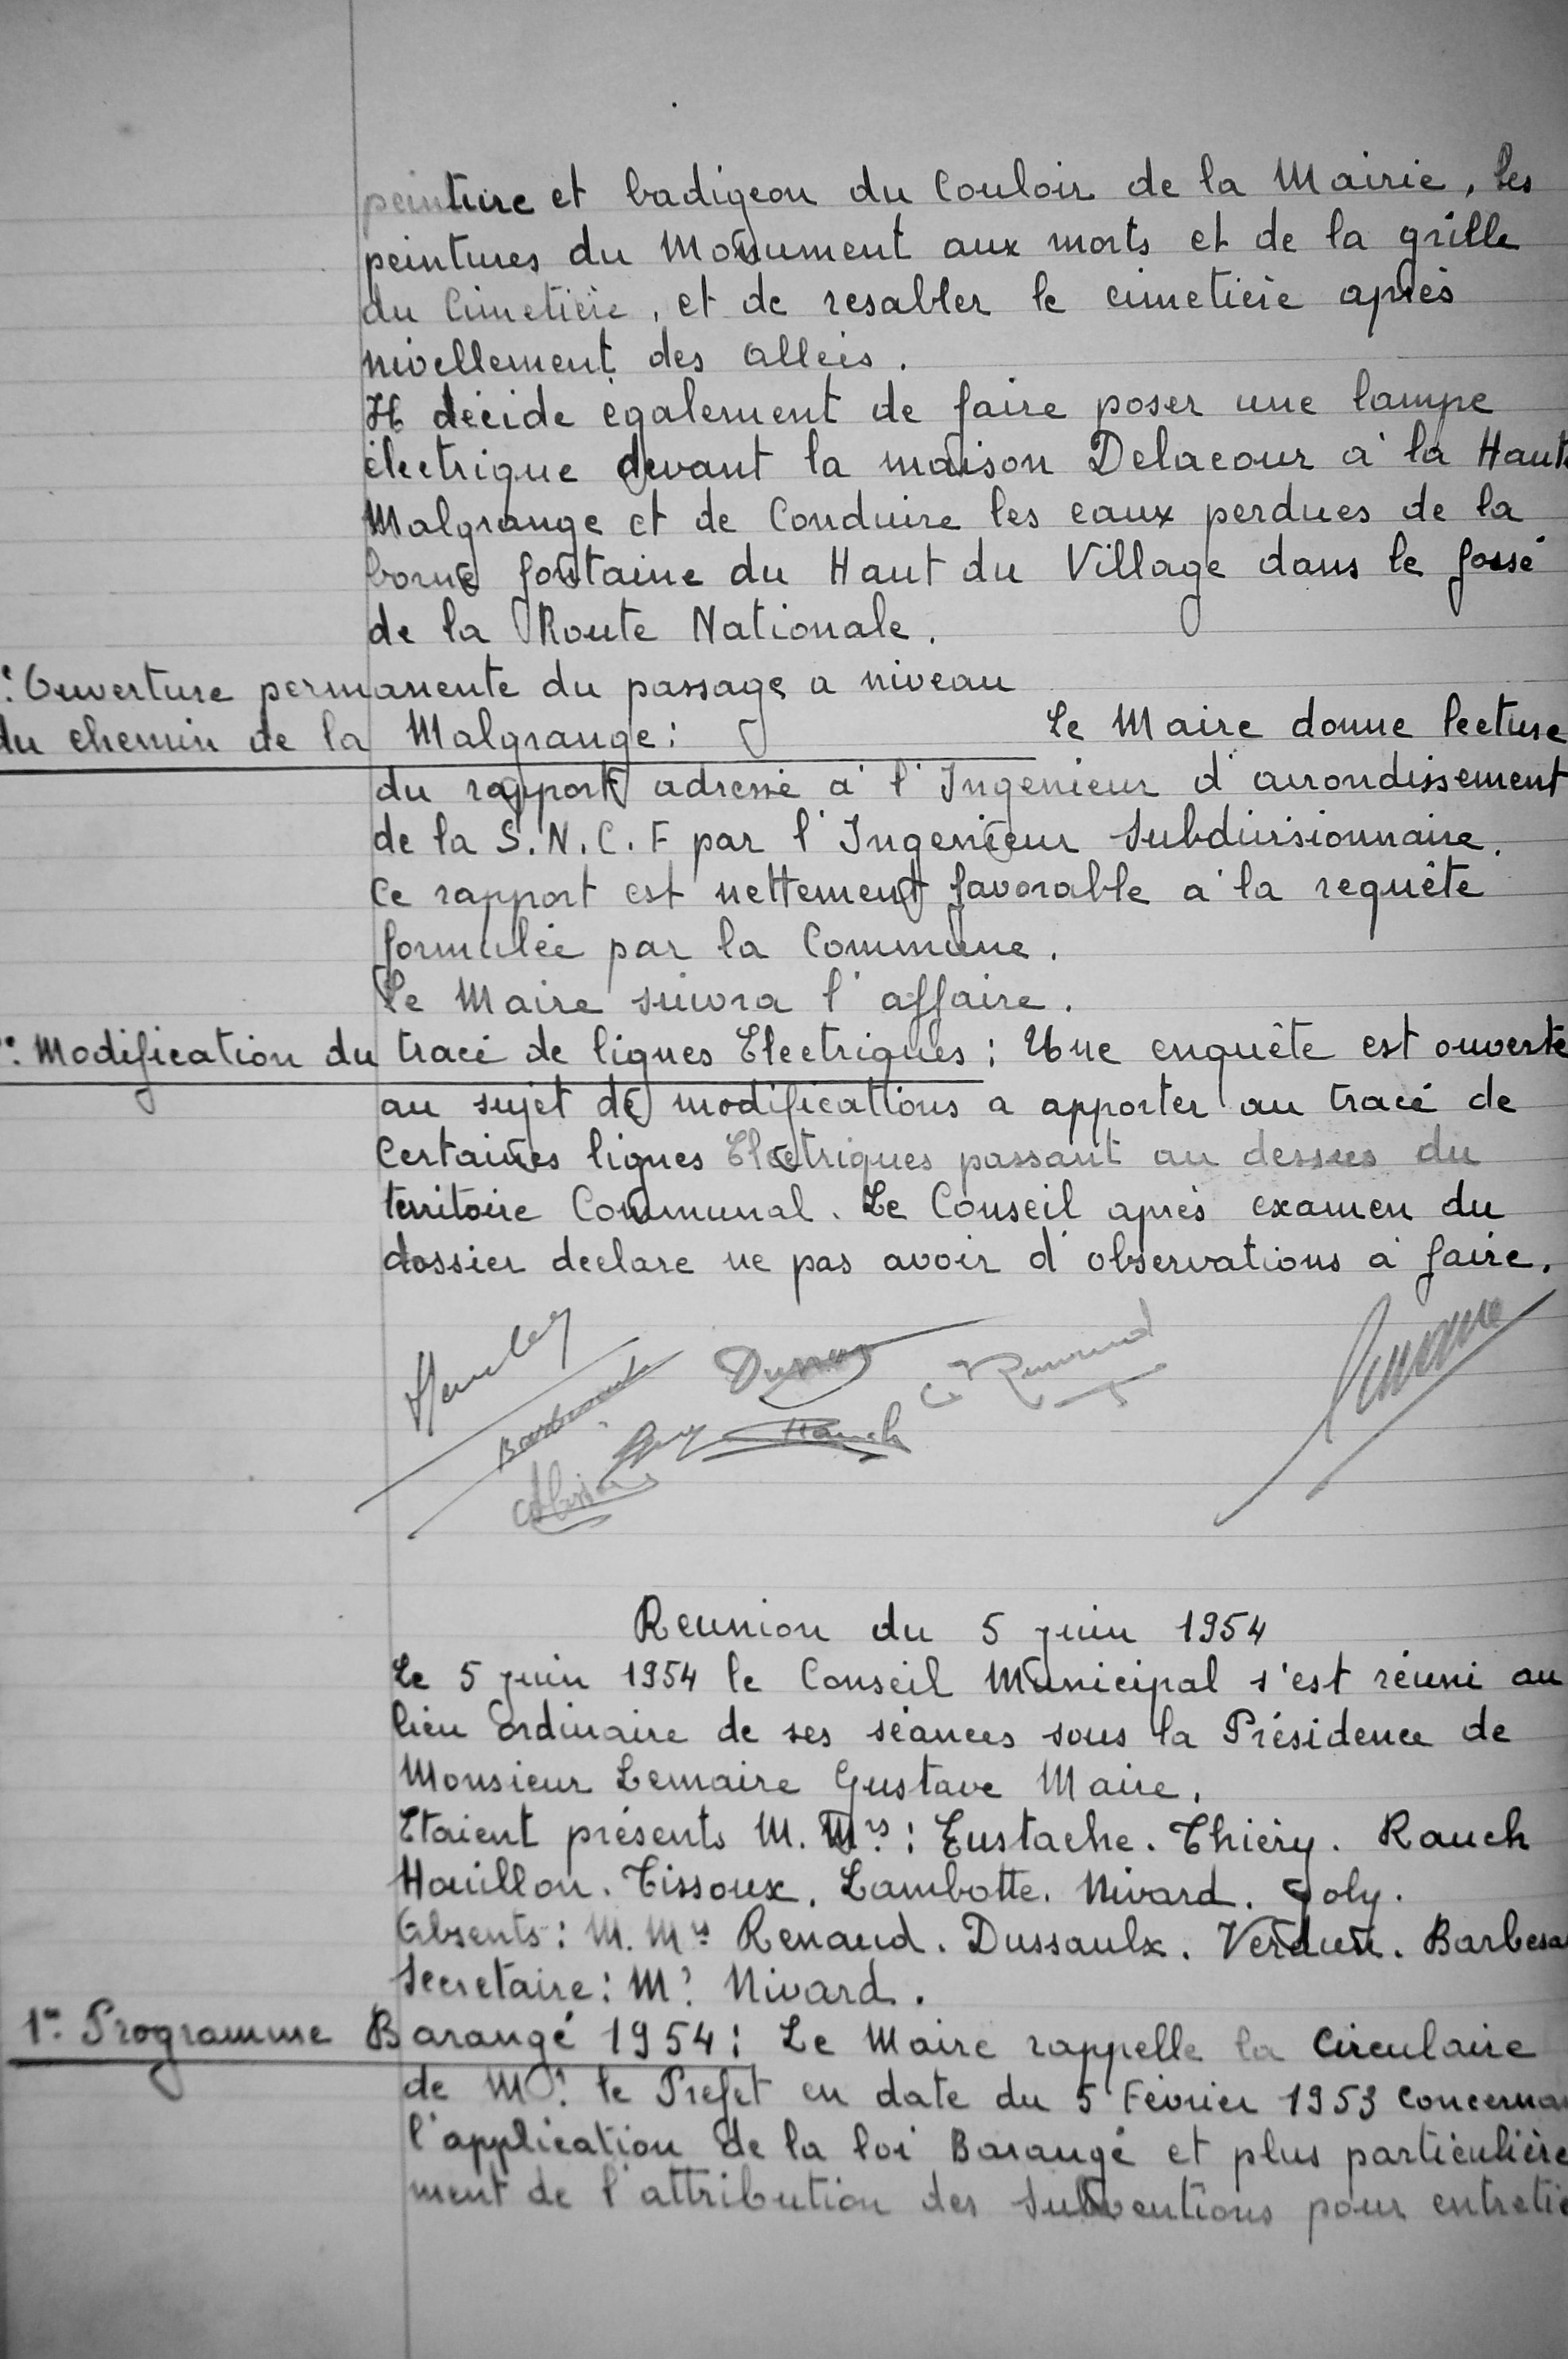 peinture et badigeon du Couloir de la Mairie, les
peintures du Monument aux morts et de la grille
du Cimetière, et de resabler le cimetière après
nivellement des allées.
Il décide également de faire poser une lampe
électrique devant la maison Delacour à la Haute
Malgrange et de Conduire les eaux perdues de la
borne fontaine du Haut du Village dans le fossé
de la Route Nationale.
Ouverture permanente du passage a niveau
du chemin de la Malgrange: Le Maire donne lecture
du rapport adressé à l'Ingenieur d'arrondissement
de la S.N.C.F par l'Ingenieur Subdivisionnaire.
Ce rapport est nettement favorable à la requête
formulée par la Commune.
Le Maire suivra l'affaire.
Modification du tracé de lignes Electriques: Une enquête est ouverte
au sujet de modifications a apporter au tracé de
Certaines lignes Electriques passant au dessus du
territoire Communal. Le Conseil après examen du
dossier declare ne pas avoir d'observations à faire.
Rauch
Reunion du 5 juin 1954
Le 5 juin 1954 le Conseil Municipal s'est réuni au
lieu ordinaire de ses séances sous la Présidence de
Monsieur Lemaire Gustave Maire.
Etaient présents M. Mrs: Eustache. Thiéry. Rauch
Houillon. Tissoux. Lambotte. Nivard. Joly.
Absents: M. Mrs Renaud. Dussaulx. Verdun. Barbesa
Secretaire: Mr Nivard.
1° Programme Barangé 1954: Le Maire rappelle la Circulaire
de Mr. le Prefet en date du 5 Février 1953 Concerna
l'application de la loi Barangé et plus particulière
ment de l'attribution des Subventions pour entretie